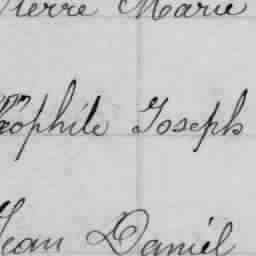 Pierre Marie
Théophile Joseph
Jean Daniel